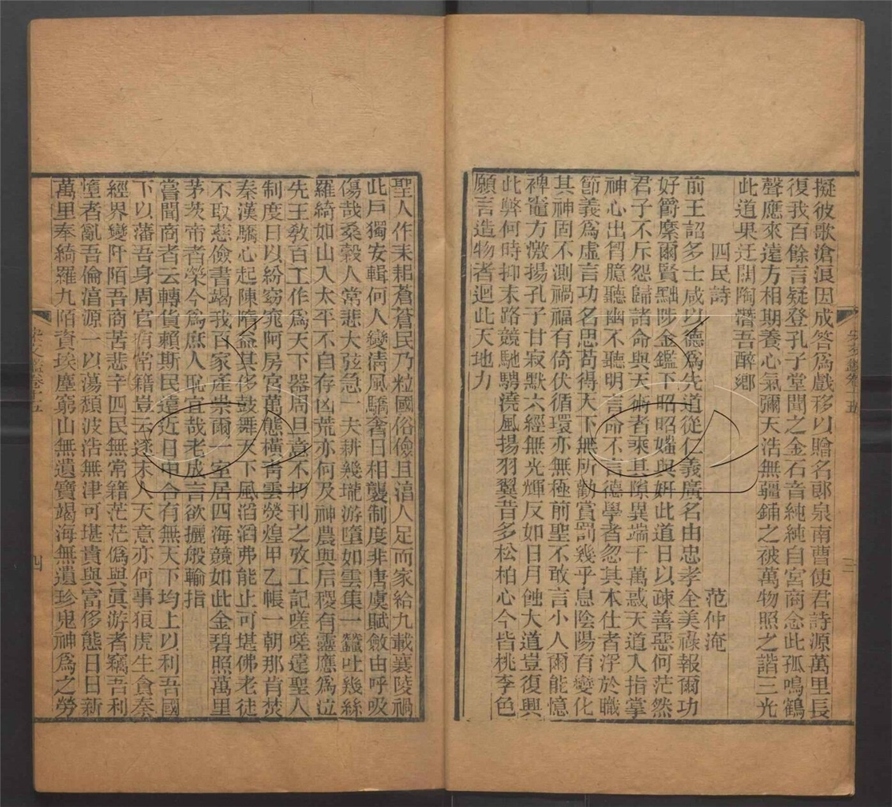 擬彼歌滄浪因成答爲戲移以贈名郞泉南曹使君詩源萬里長
復我百餘言疑登孔子堂聞之金石音純純自宮商念此孤鳴鶴
聲應來遠方相期養心氣彌天浩無疆鋪之被萬物照之諧三光
此道果迂闊陶潛吾醉鄉
四民詩
范仲淹
前王詔多士咸以德爲先道從仁義廣名由忠孝全美祿報爾功
好爵縻爾賢黜陟金鑑下昭昭媸與姸此道日以疎善惡何茫然
君子不斥怨歸諸命與天術者乘其隙異端千萬惑天道入指掌
神心出胷臆聽幽不聽明言命不言德學者忽其本仕者浮於職
節義爲虛言功名思苟得天下無所勸賞罰幾乎息陰陽有變化
其神固不測禍福有倚伏循環亦無極前聖不敢言小人爾能憶
裨竈方激揚孔子甘寂默六經無光輝反如日月蝕大道豈復興
此弊何時抑末路競馳騁澆風揚羽翼昔多松柏心今皆桃李色
願言造物者迴此天地力
聖人作耒耜蒼蒼民乃粒國俗儉且淳人足而家給九載襄陵禍
此戶獨安輯何人變淸風驕奢日相襲制度非唐虞賦斂由呼吸
傷哉桑穀人常悲大弦急一夫耕幾壠游墮如雲集一蠶吐幾絲
羅綺如山入太平不自存凶荒亦何及神農與后稷有靈應爲泣
先王敎百工作爲天下器周旦意不朽刊之攷工記嗟嗟遠聖人
制度日以紛窈窕阿房宮萬態橫靑雲熒煌甲乙帳一朝那肯焚
秦漢驕心起陳隋益其侈鼓舞天下風滔滔弗能止可堪佛老徒
不取慈儉書竭我百家產崇爾一室居四海競如此金碧照萬里
茅茨帝者榮今爲庶人恥宜哉老成言欲攦般輸指
嘗聞商者云轉貨賴斯民遠近日中合有無天下均上以利吾國
下以藩吾身周官有常籍豈云逐末人天意亦何事狼虎生貪秦
經界變阡陌吾商苦悲辛四民無常籍茫茫僞與眞游者竊吾利
墮者亂吾倫淳源一以蕩頹波浩無津可堪貴與富侈態日日新
萬里奉綺羅九陌資埃塵窮山無遺寶竭海無遺珍鬼神爲之勞
四